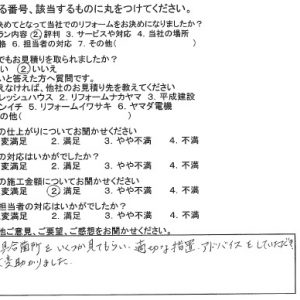 る番号、該当するものに丸をつけてください。
決めてとなって当社でのリフォームをお決めになりましたか?
ラン内容 ②評判 3. サービスや対応 4. 当社の場所
格 6. 担当者の対応 7. その他(
でもお見積りを取られましたか?
い ②いいえ
いと答えた方へ質問です。
えなければ、他社のお見積り先を教えてください
レッシュハウス 2. リフォームナカヤマ 3. 平成建設
ンイチ 5. リフォームイワサキ 6. ヤマダ電機
の他(
の仕上がりについてお聞かせください
変満足 2. 満足 3. やや不満 4. 不満
の対応はいかがでしたか?
変満足 2. 満足 3. やや不満 4. 不満
の施工金額についてお聞かせください
変満足 ②満足 3. やや不満 4. 不満
担当者の対応はいかがでしたか?
変満足 2. 満足 3. やや不満 4. 不満
他ご意見、ご要望、ご感想をお聞かせください。
具合箇所をいくつか見てもらい、適切な措置、アドバイスをしていただき
変助かりました。